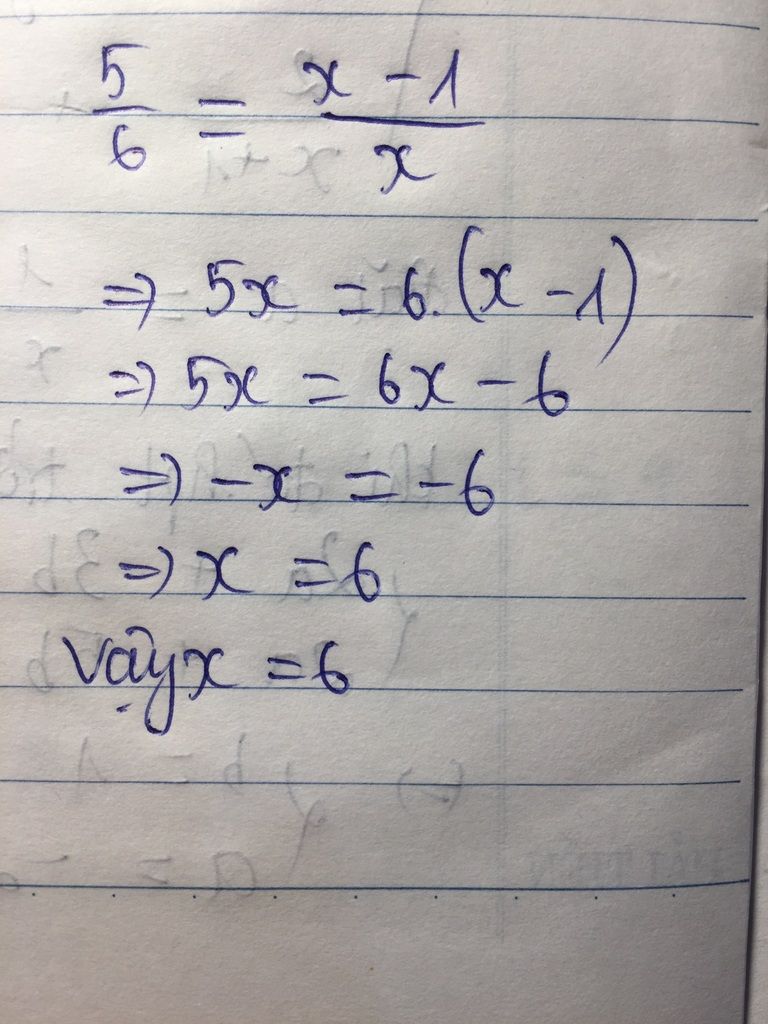 5/6 = x - 1/x
⇒ 5x = 6.(x - 1)
⇒ 5x = 6x - 6
⇒ -x = -6
⇒ x = 6
Vậy x = 6